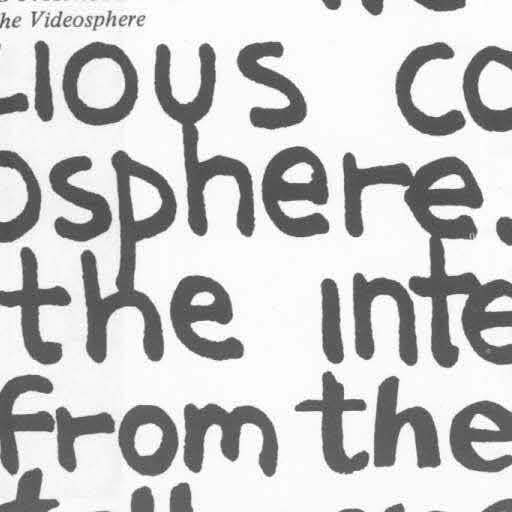 the Videosphere
ious co
osphere.
the inte
from the